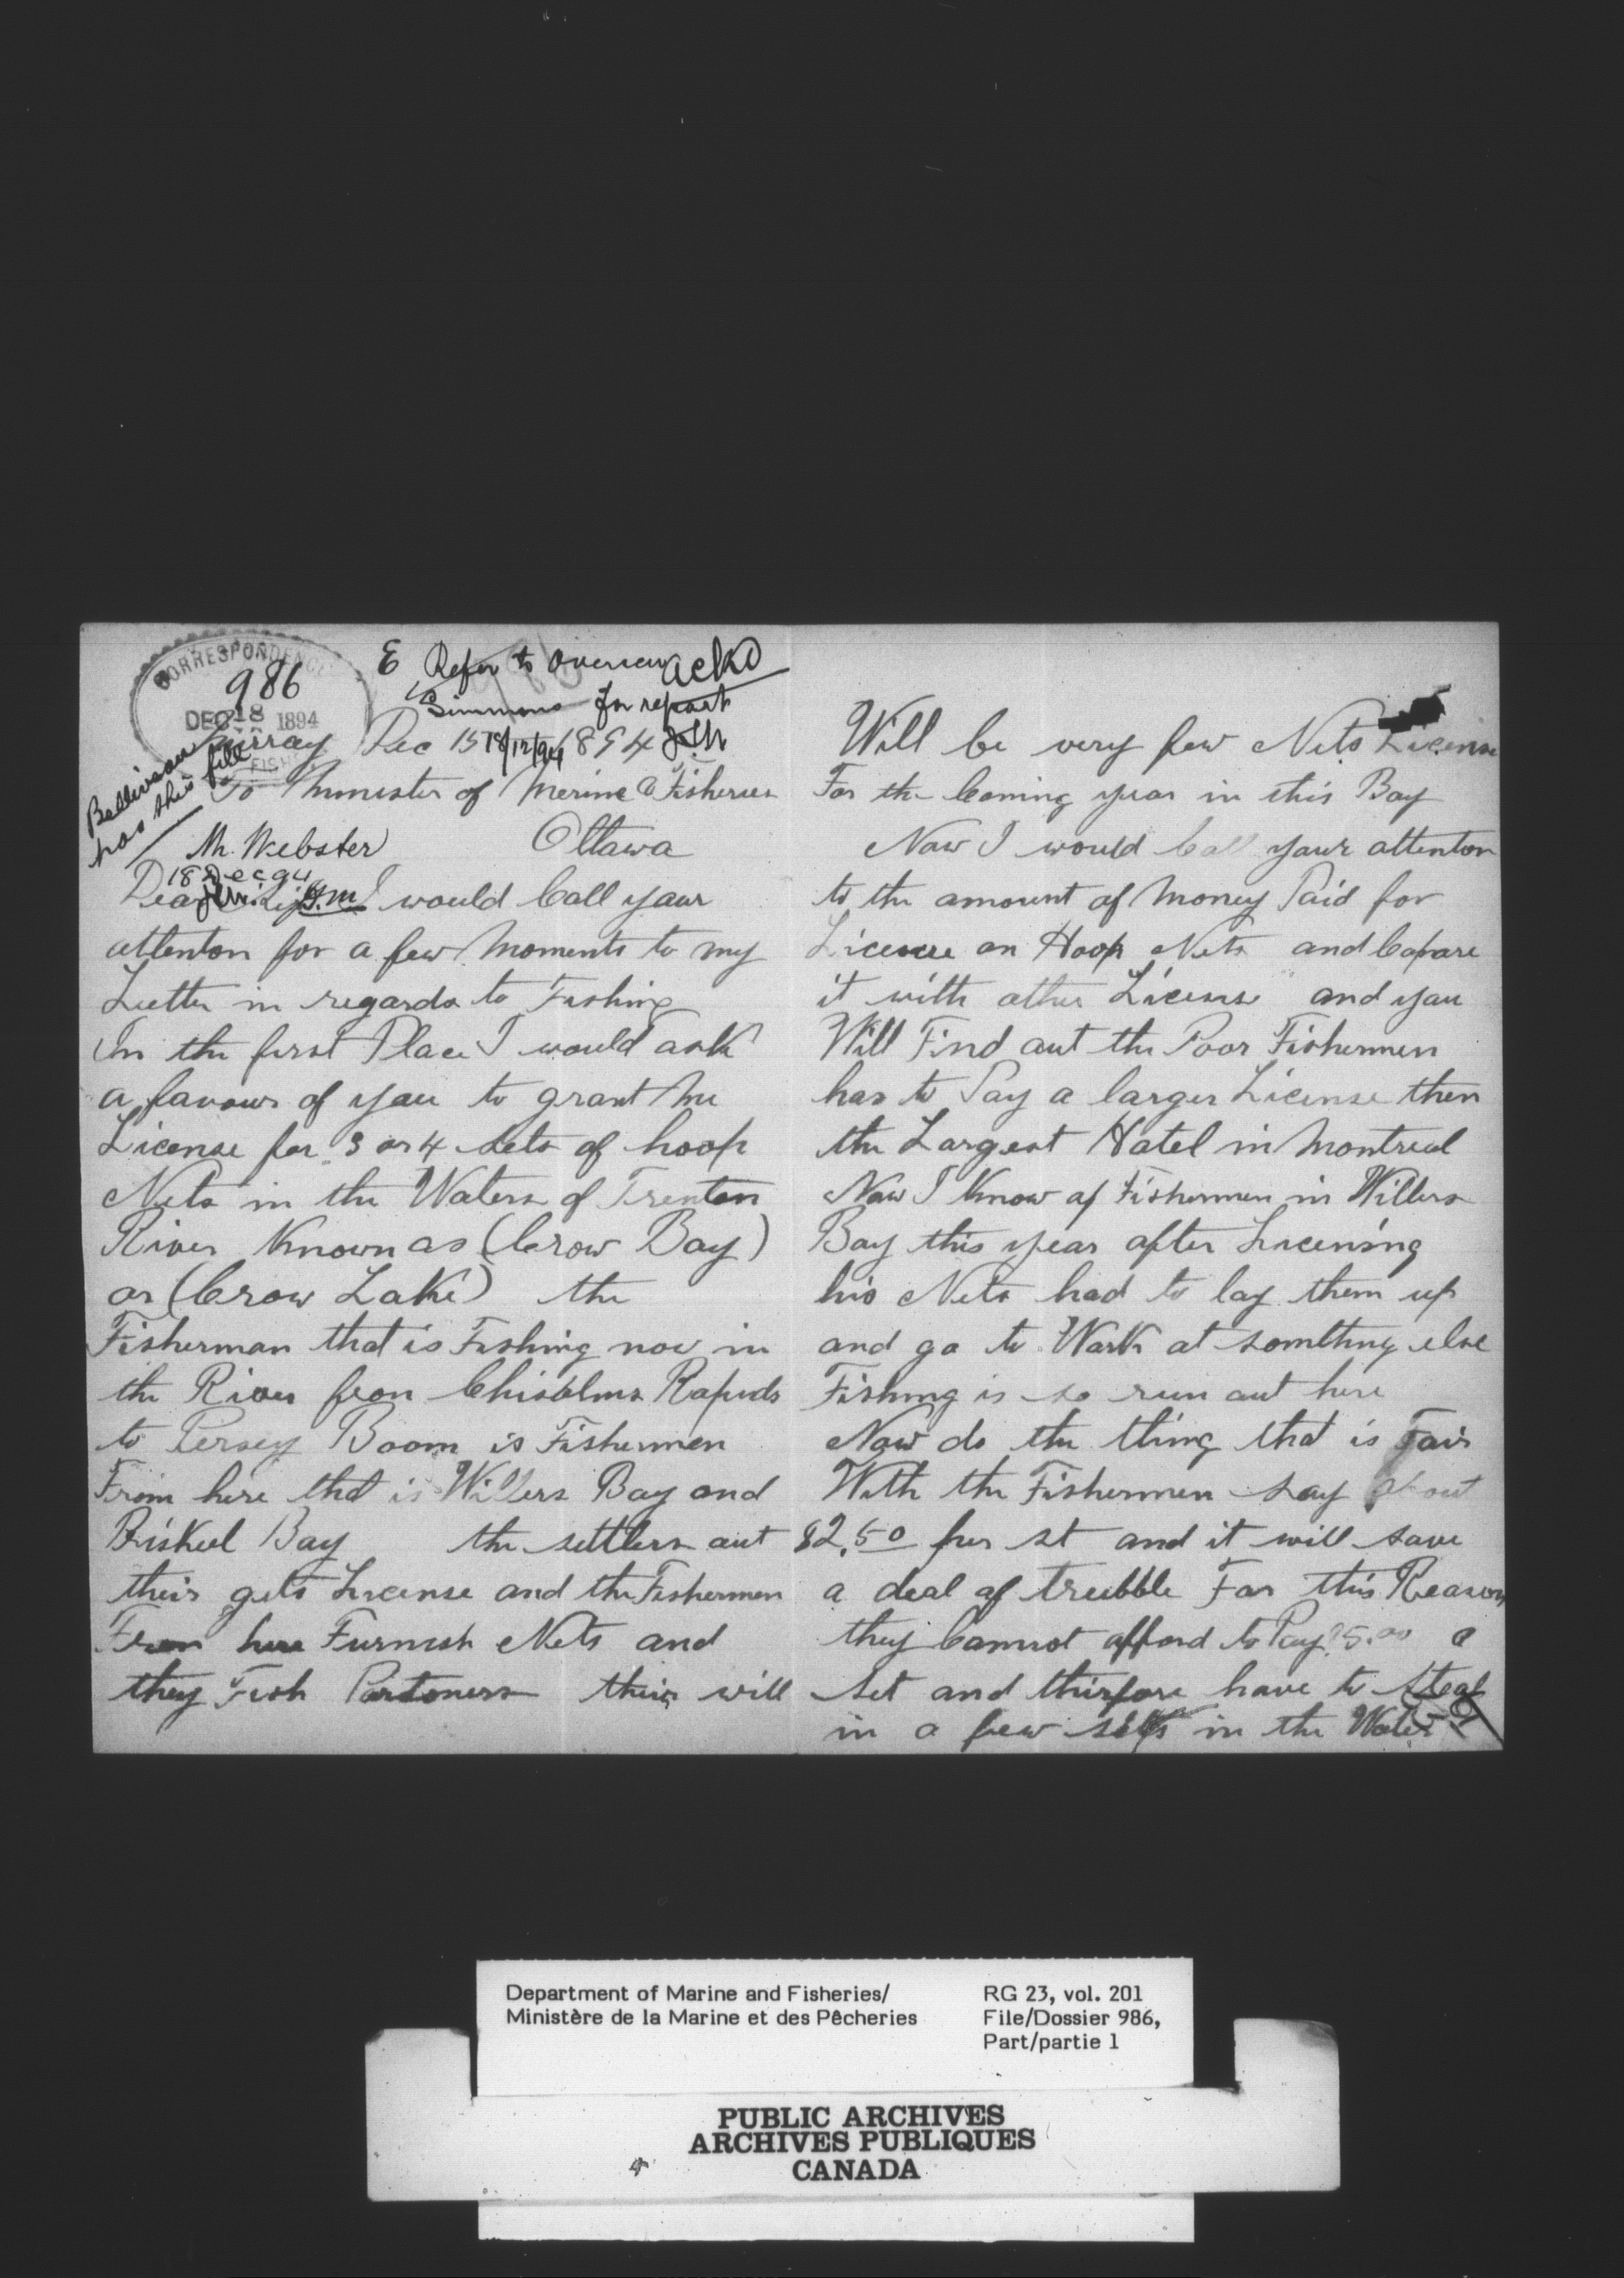 CORRESPONDENCE
986
DEC 18 1894
FISH
E Refer to Overseer ackd
Simmons for report
18/12/94
Belliveau
has this file
Murray Dec 15 1894
To Minister of Merine & Fisheries
Mr. Webster Ottawa
18 Dec 94
Dear I would Call your
attenton for a few Moments to my
Letter in regards to Fishing
In the first Place I would ask
a favour of you to grant Me
License for 3 or 4 sets of hoop
Nets in the Waters of Trenton
River Known as (Crow Bay)
or (Crow Lake) the
Fisherman that is Fishing now in
the River from Chisholms Rapids
to Persey Boom is Fishermen
From here that is Willers Bay and
Bay the settlers out
their gets License and the Fishermen
From here Furnish Nets and
they Fish Partoners their will
Will be very few Nets License
For the Coming year in this Bay
Now I would Call your attenton
to the amount of Money Paid for
Licence on Hoop Nets and Copare
it with other License and you
Will Find out the Poor Fishermen
has to Pay a larger License then
the Largest Hotel in Montreal
Now I Know of Fishermen in Willers
Bay this year after Licensing
his Nets had to lay them up
and go to Work at somthing else
Fishing is so run out here
Now do the thing that is Fair
With the Fishermen say about
$2.50 per st and it will save
a deal of treubble For this Reason
they Cannot afford to Pay $5.00 a
set and thirfore have to Steal
in a few sets in the Water
Department of Marine and Fisheries/
Ministère de la Marine et des Pêcheries
RG 23, vol. 201
File/Dossier 986,
Part/partie 1
PUBLIC ARCHIVES
ARCHIVES PUBLIQUES
CANADA